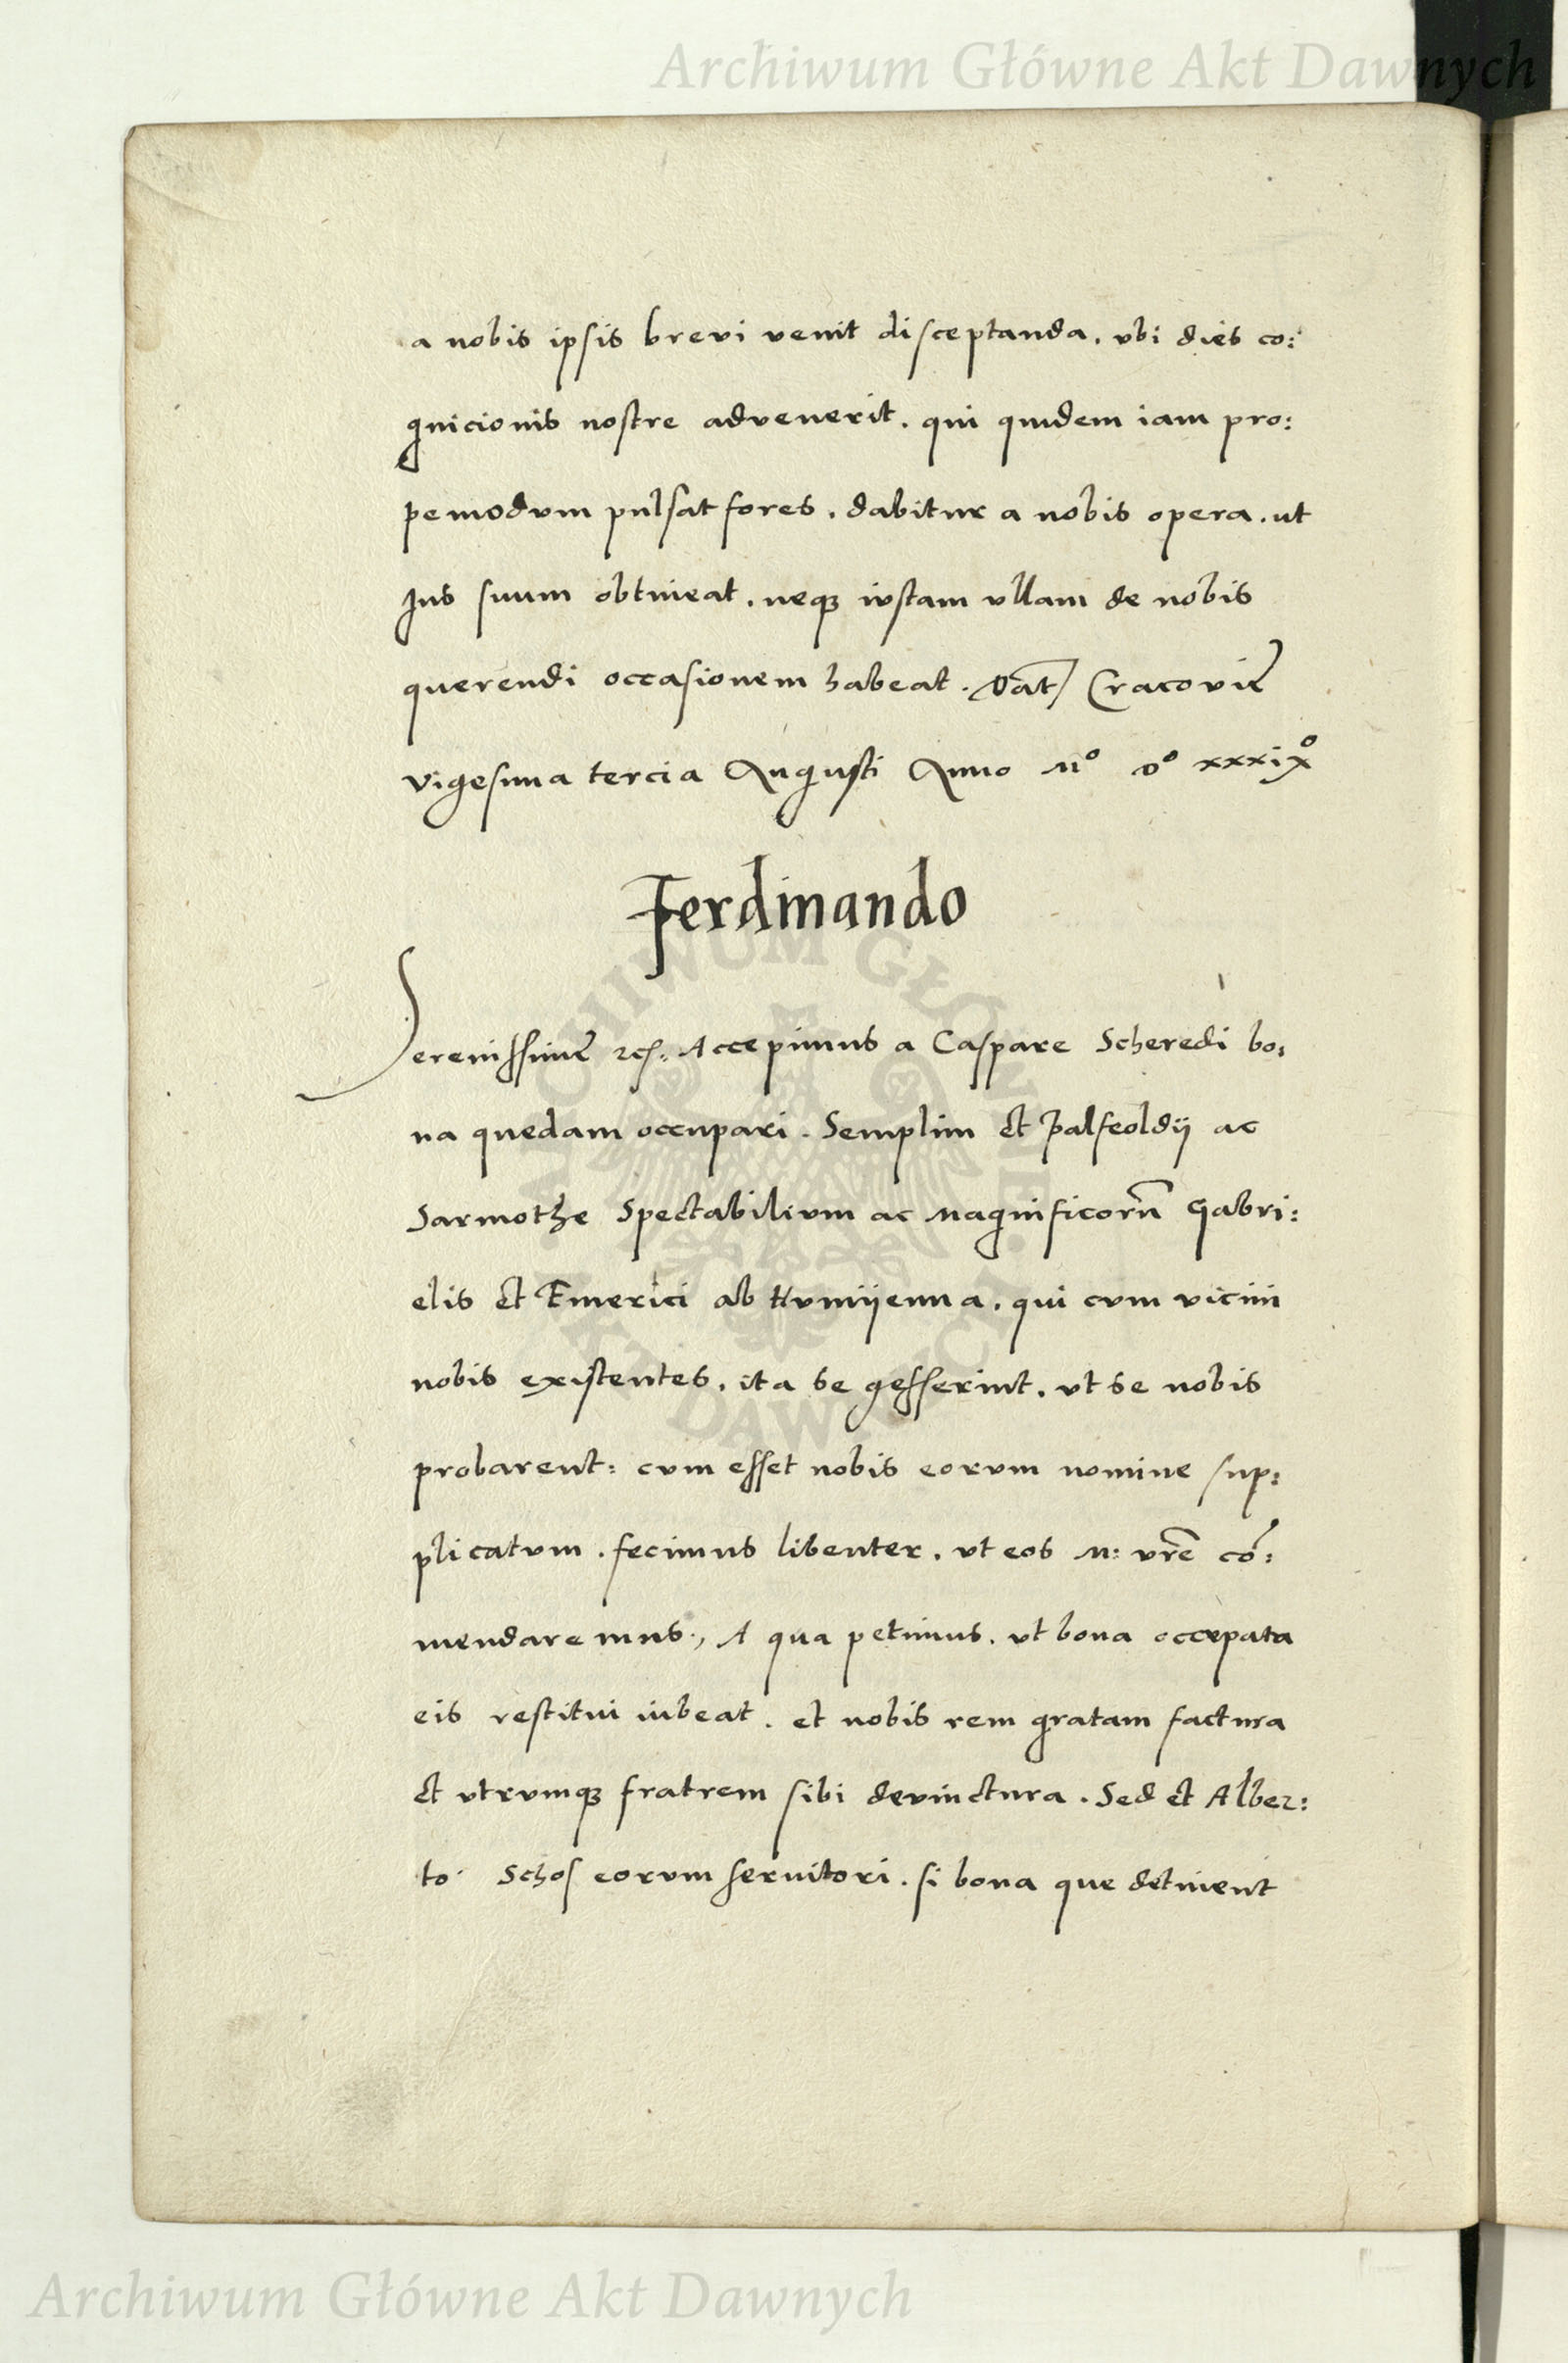 Archiwum Główne Akt Dawnych
a nobis ipsis brevi venit disceptanda. vbi dies co:
gnicionis nostre advenerit. qui quidem iam pro:
pemodvm pulsat fores. dabitur a nobis opera. ut
Jus suum obtineat. neqꝫ ivstam vllam de nobis
querendi occasionem habeat. Dat̄ Cracovię
vigesima tercia Augusti Anno Mº Dº xxxixº
Ferdinando
Serenissimę rex. Accepimus a Caspare Scheredi bo:
na quedam occupari. Semplim et Palfeoldij ac
Sarmothe Spectabilivm ac Magnificorū Gabri:
elis et Emerici ab Hvmijenna. qui cvm vicini
nobis existentes. ita se gesserint. vt se nobis
probarent: cvm esset nobis eorvm nomine sup:
plicatvm. fecimus libenter. vt eos M: vr̄e cō:
mendaremus., A qua petimus. vt bona occepata
eis restitui iubeat. et nobis rem gratam factura
et vtrvmqꝫ fratrem sibi devinctura. Sed et Alber:
to Schos eorvm servitori. si bona que detinent
ARCHIWUM GŁÓWNE AKT DAWNYCH
Archiwum Główne Akt Dawnych